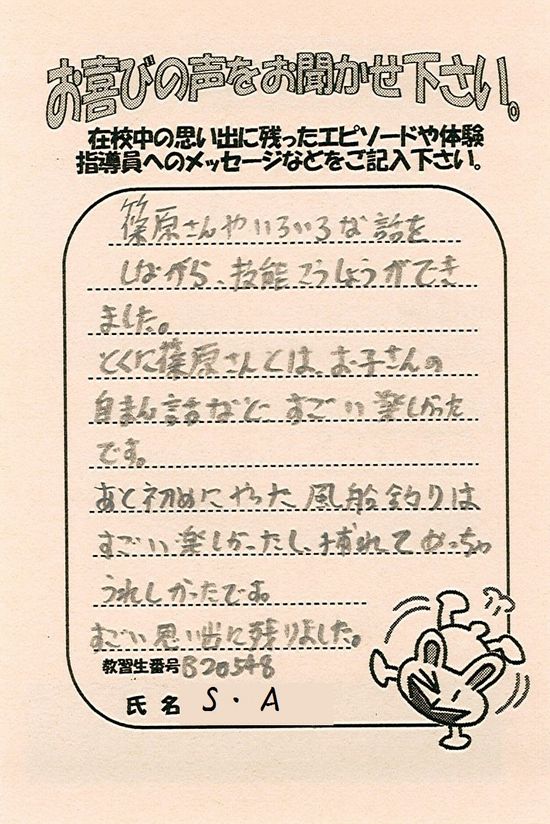 お喜びの声をお聞かせ下さい。
在校中の思い出に残ったエピソードや体験
指導員へのメッセージなどをご記入下さい。
篠原さんやいろいろな話を
しながら、技能こうしゅうができ
ました。
とくに篠原さんとは、お子さんの
自まん話など、すごい楽しかった
です。
あと初めにやった風船釣りは
すごい楽しかったし、捕れてめっちゃ
うれしかったです。
すごい思い出に残りました。
教習生番号B20548
氏名 S・A